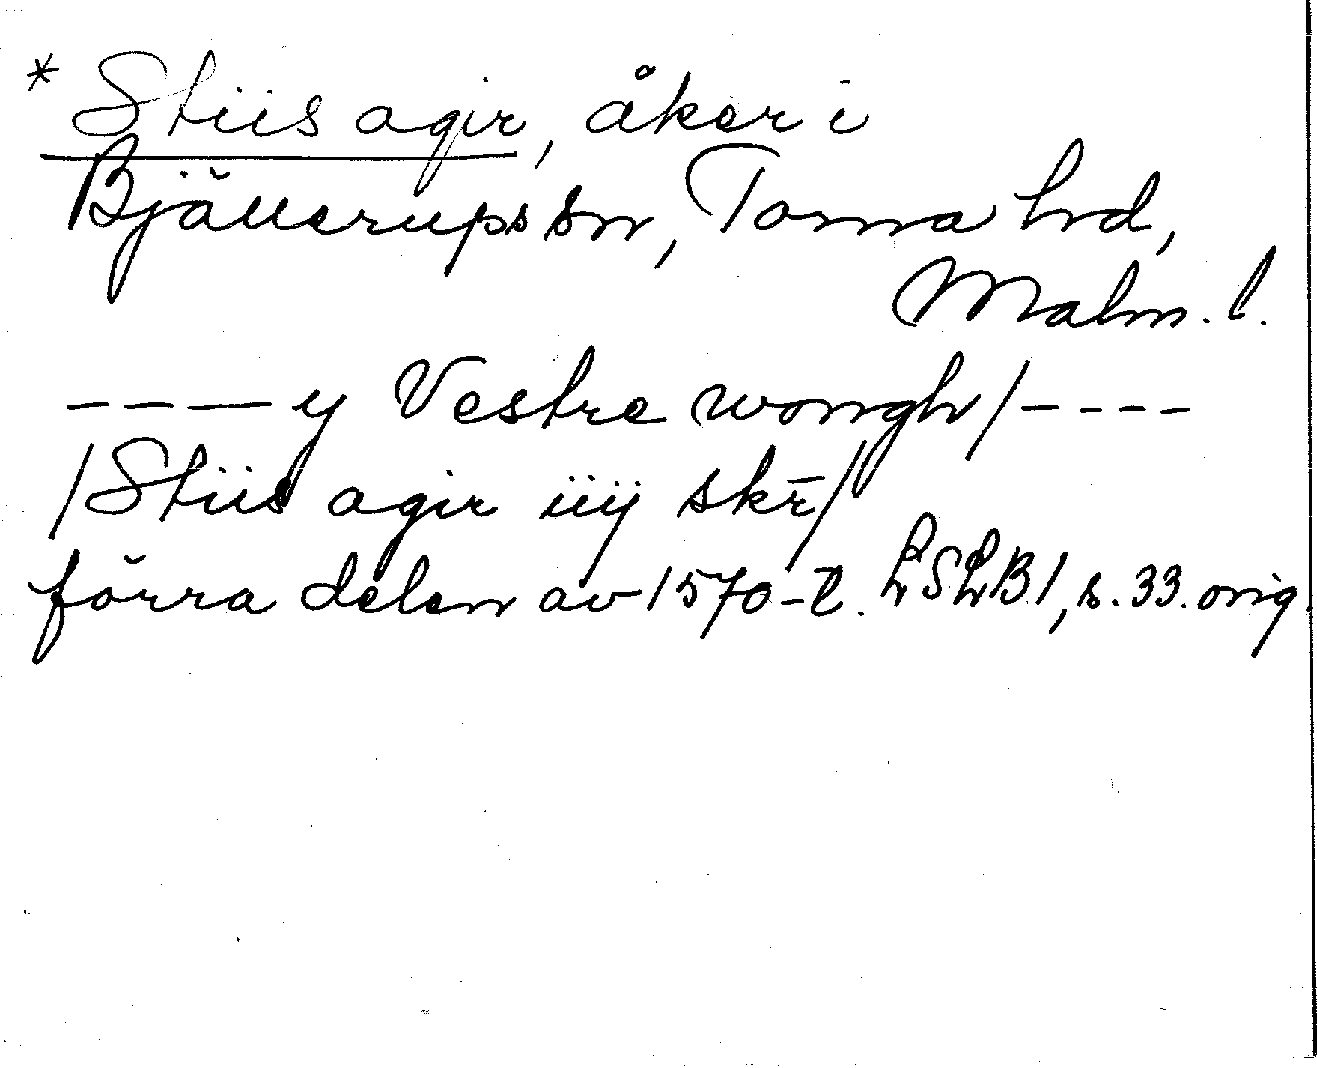 * Stiis agir, åker i
Bjällerups sn, Torna hrd,
Malm. l.
– – — y Vestre wongh / – – – –
/ Stiis agir iiij skr̄ /
förra delen av 1570-t. LSLB 1, s. 33. orig.